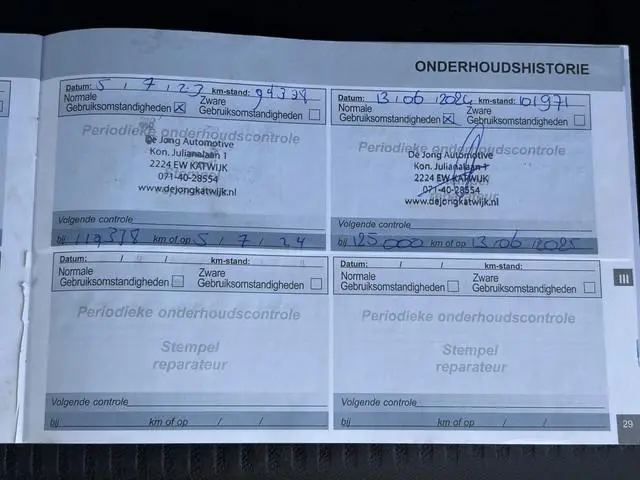 ONDERHOUDSHISTORIE
Datum: 5 / 7 / 23 km-stand: 99378
Normale Gebruiksomstandigheden ☒ Zware Gebruiksomstandigheden ☐
Periodieke onderhoudscontrole
De Jong Automotive
Kon. Julianalaan 1
2224 EW KATWIJK
071-40-28554
www.dejongkatwijk.nl
Volgende controle
bij 119378 km of op 5 / 7 / 24
Datum: 13 / 06 / 2024 km-stand: 101971
Normale Gebruiksomstandigheden ☒ Zware Gebruiksomstandigheden ☐
Periodieke onderhoudscontrole
De Jong Automotive
Kon. Julianalaan 1
2224 EW KATWIJK
071-40-28554
www.dejongkatwijk.nl
reparateur
Volgende controle
bij 125000 km of op 13 / 06 / 2025
Datum: / / km-stand:
Normale Gebruiksomstandigheden ☐ Zware Gebruiksomstandigheden ☐
Periodieke onderhoudscontrole
Stempel
reparateur
Volgende controle
bij km of op / /
Datum: / / km-stand:
Normale Gebruiksomstandigheden ☐ Zware Gebruiksomstandigheden ☐
Periodieke onderhoudscontrole
Stempel
reparateur
Volgende controle
bij km of op / /
III
29